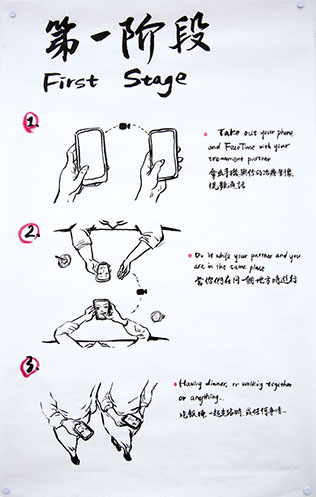 第一阶段
First Stage
1.
Take out your phone
and FaceTime with your
treatment partner
拿出手機與你的治療對像
視頻通話
2.
Do it while your partner and you
are in the same place
當你們在同一個地方時進行
3.
Having dinner, or walking together
or anything...
吃飯時、一起走路時,或任何事情...